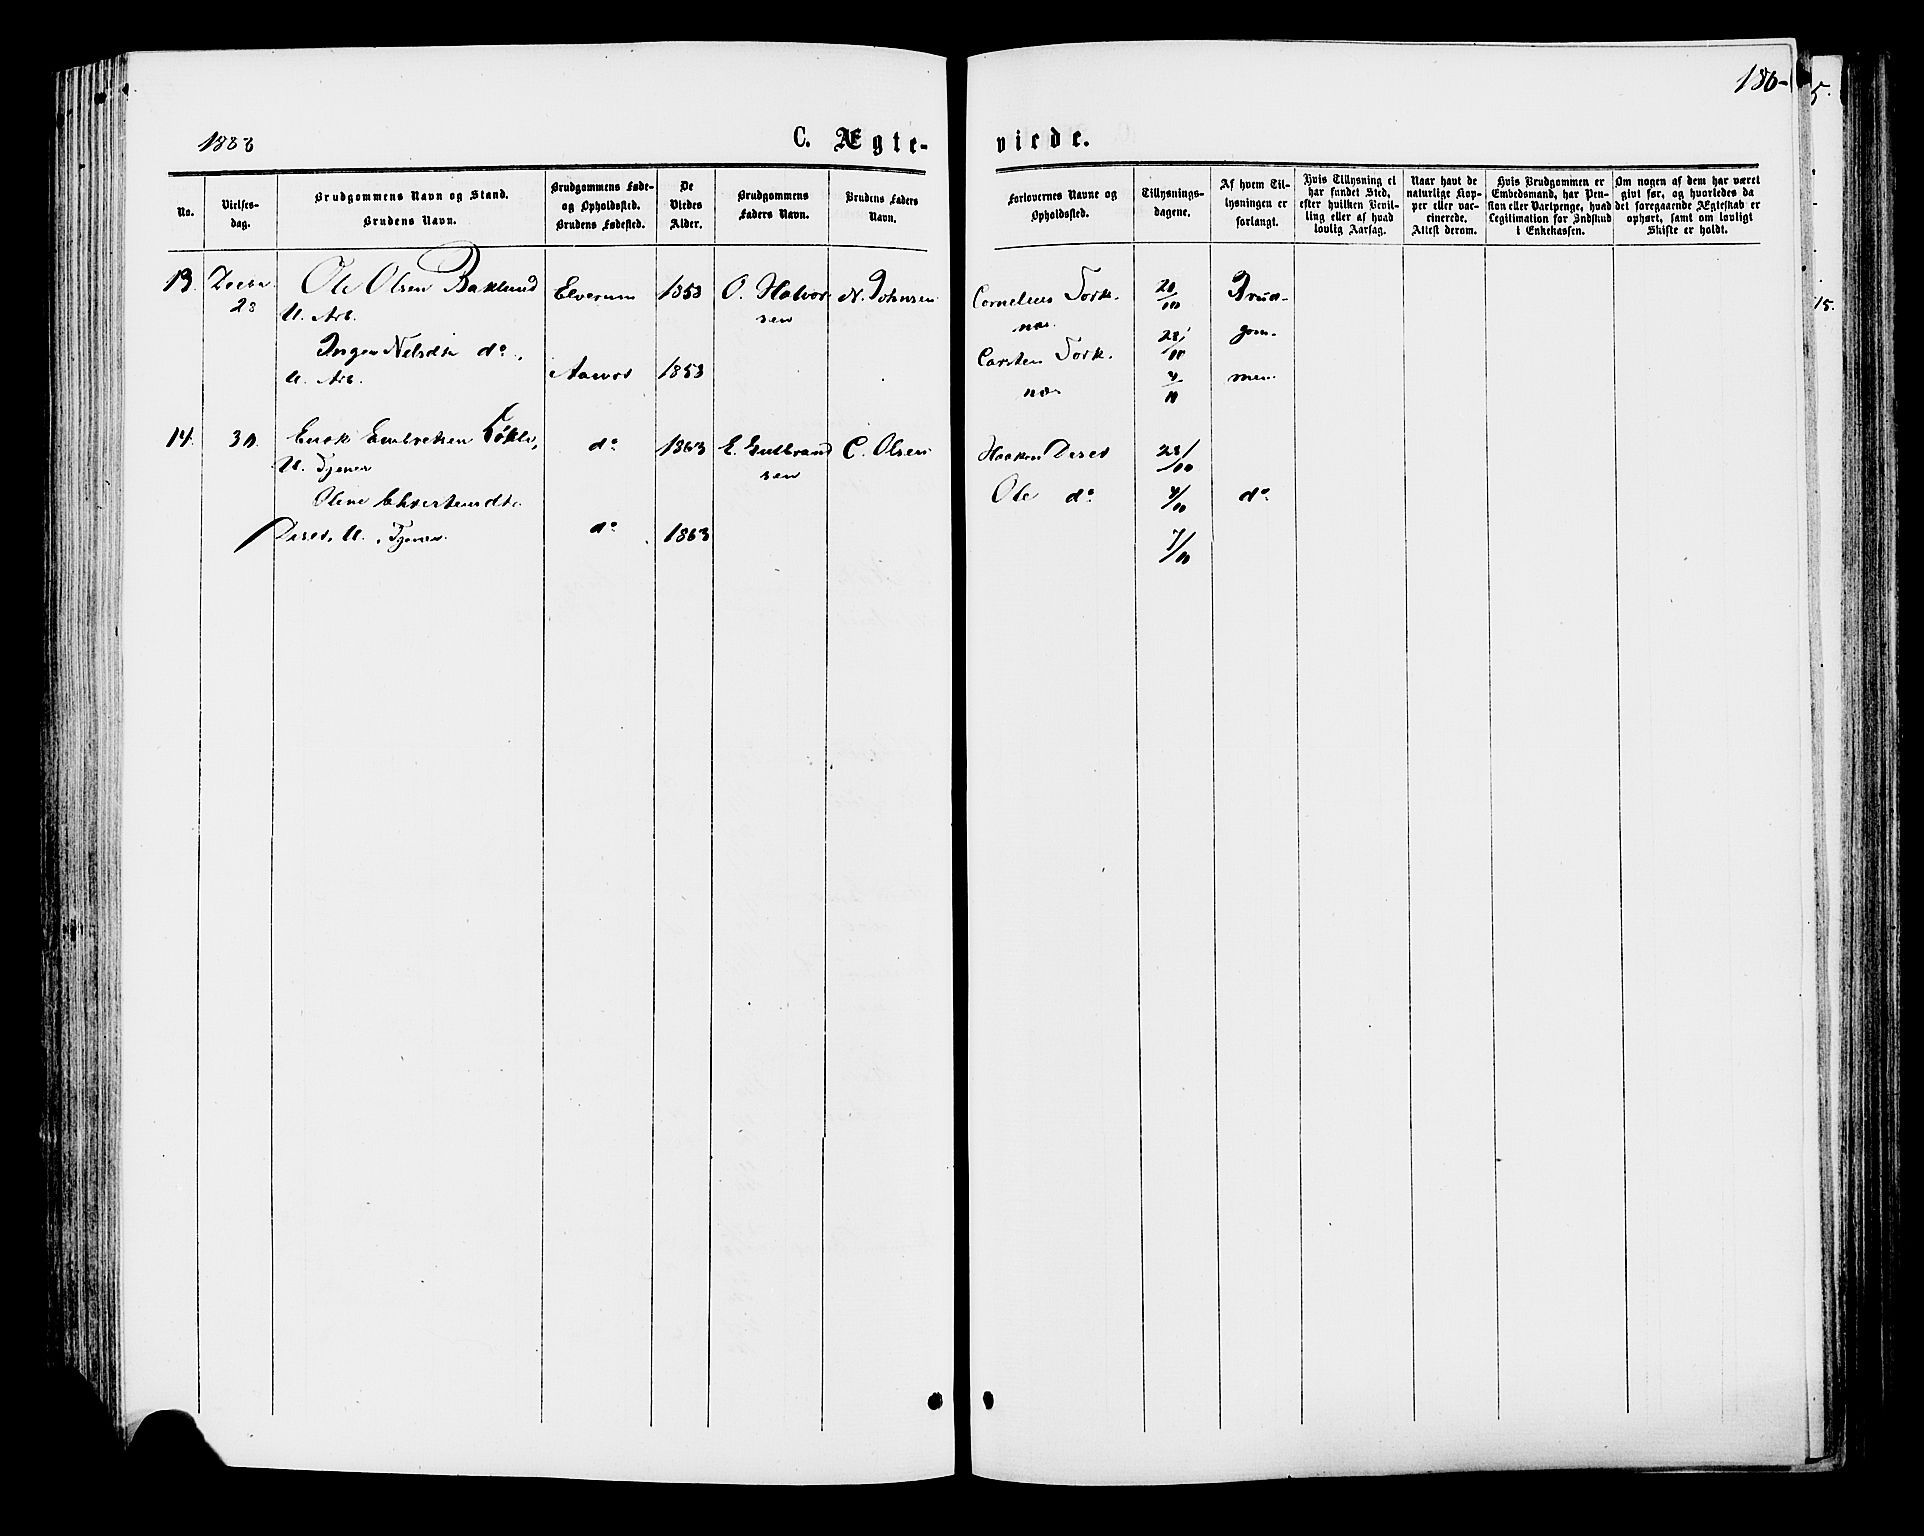 186-
5.
1883
C. Ægte-
viede.
No.
Vielses-
dag.
Brudgommens Navn og Stand.
Brudens Navn.
Brudgommens Føde-
og Opholdssted.
Brudens Fødested.
De
Viedes
Alder.
Brudgommens
Faders Navn.
Brudens Faders
Navn.
Forlovernes Navne og
Opholdssted.
Tillysnings-
dagene.
Af hvem Til-
lysningen er
forlangt.
Hvis Tillysning ei
har fundet Sted,
efter hvilken Bevil-
ling eller af hvad
lovlig Aarsag.
Naar havt de
naturlige Kop-
per eller vac-
cinerede.
Attest derom.
Hvis Brudgommen er
Embedsmand, har Pen-
sion eller Vartpenge, hvad
Legitimation for Indskud
i Enkekassen.
Om nogen af dem har været
givt før, og hvorledes da
det foregaaende Ægteskab er
ophørt, samt om lovligt
Skifte er holdt.
13.
23
Ole Olsen Baklund
U. Arb.
Elverum
1853
O. Halvor
sen
N. Johnsen
Inger Nelsdtr do.
U. Arb.
1853
Cornelius Tørk.
næs
Carsten Tørk.
næs
20/10
28/10
4/10
Brud-
gom-
men
15.
14.
30.
Embretsen
U. Tjener
do
1863
E. Gulbrand
sen
C. Olsen
Oline
U. Tjener
do
1863
Haaken
Ole do
28/10
4/10
7/10
do